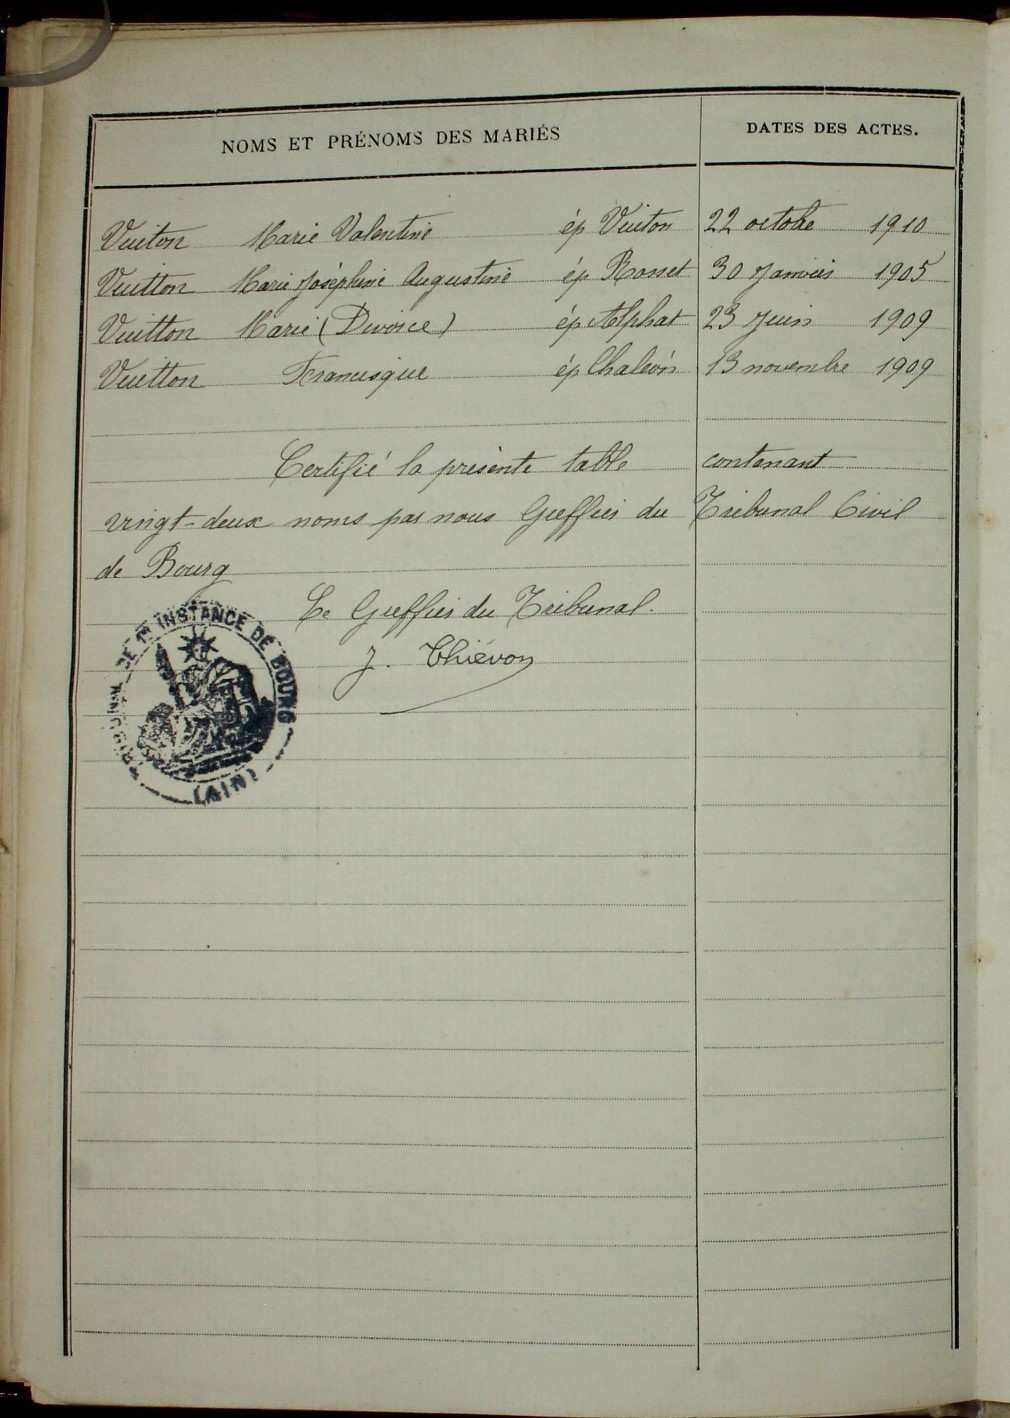 NOMS ET PRÉNOMS DES MARIÉS DATES DES ACTES.
Vuiton Marie Valentine ép Vuiton 22 octobre 1910
Vuitton Marie Joséphine Augustine ép Rosset 30 Janvier 1905
Vuitton Marie (Divorce) ép Alphat 23 Juin 1909
Vuitton Francisque ép Chaleön 13 novembre 1909
Certifié la présente table contenant
vingt-deux noms par nous Greffier du Tribunal Civil
de Bourg
Le Greffier du Tribunal.
J. Thiévon
TRIBUNAL DE 1re INSTANCE DE BOURG
(AIN)